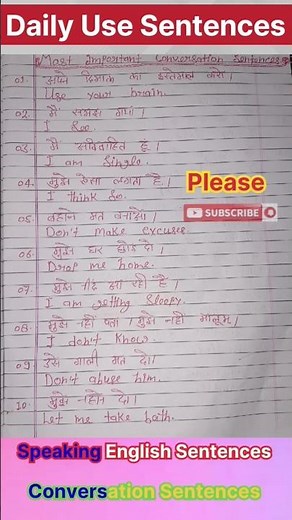 Daily Use Sentences
Most Important Conversation Sentences
01. अपने दिमाग का इस्तेमाल करो।
Use your brain.
02. मैं समझ गया।
I See.
03. मैं अविवाहित हूँ।
I am Single.
04. मुझे ऐसा लगता है।
I think So.
Please
SUBSCRIBE
05. बहाने मत बनाओ।
Don't make excuse
06. मुझे घर छोड़ दो।
Drop me home.
07. मुझे नींद आ रही है।
I am getting Sleepy.
08. मुझे नहीं पता। मुझे नहीं मालूम।
I don't Know.
09. उसे गाली मत दो।
Don't abuse him.
10. मुझे नहाने दो।
Let me take bath.
Speaking English Sentences
Conversation Sentences